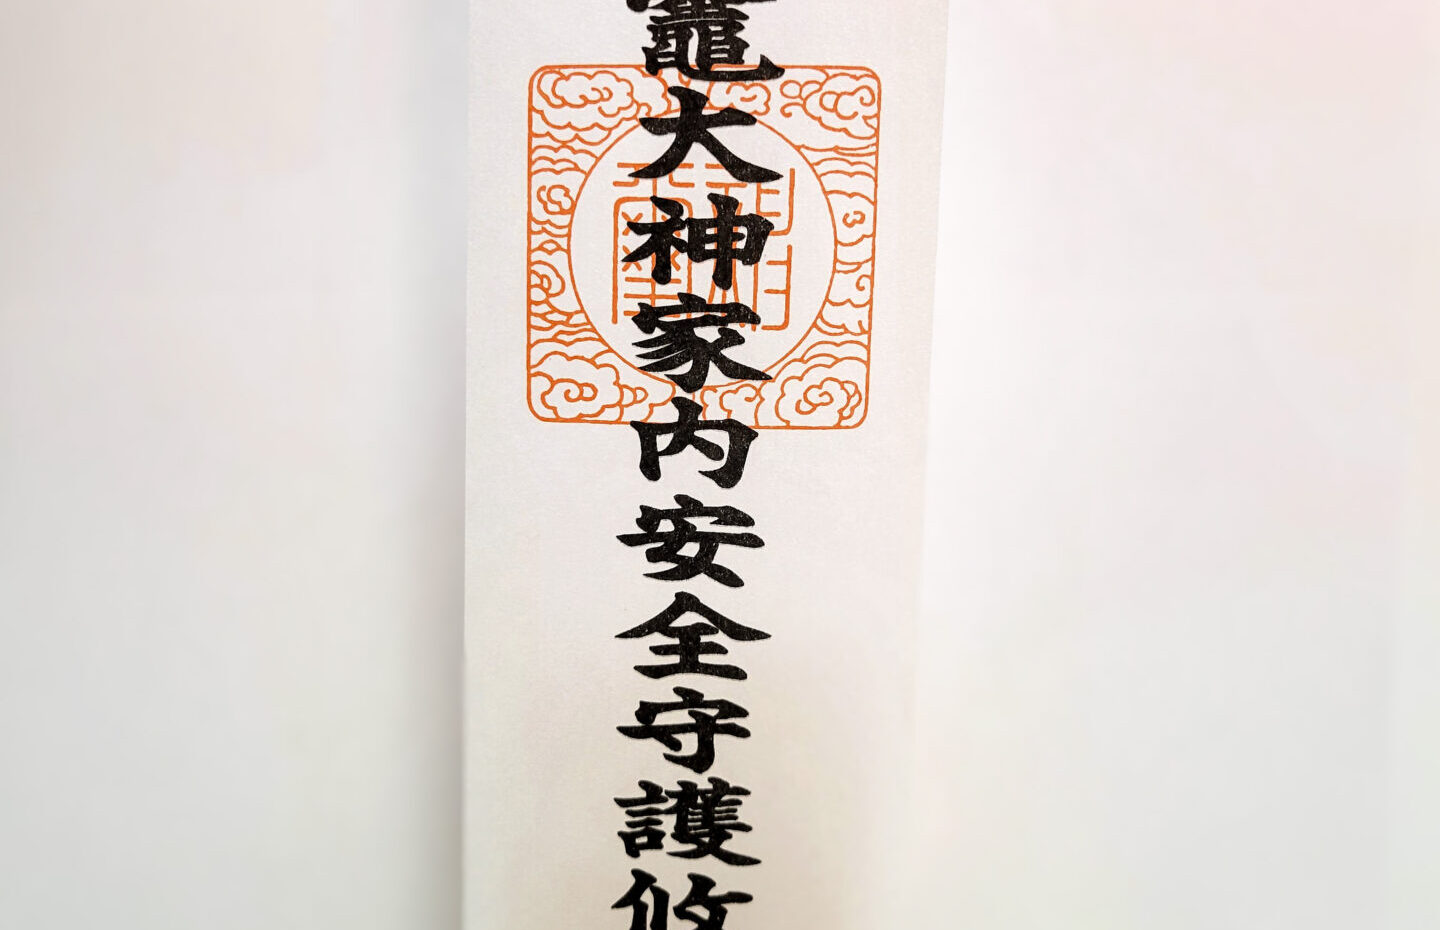 竈大神家内安全守護